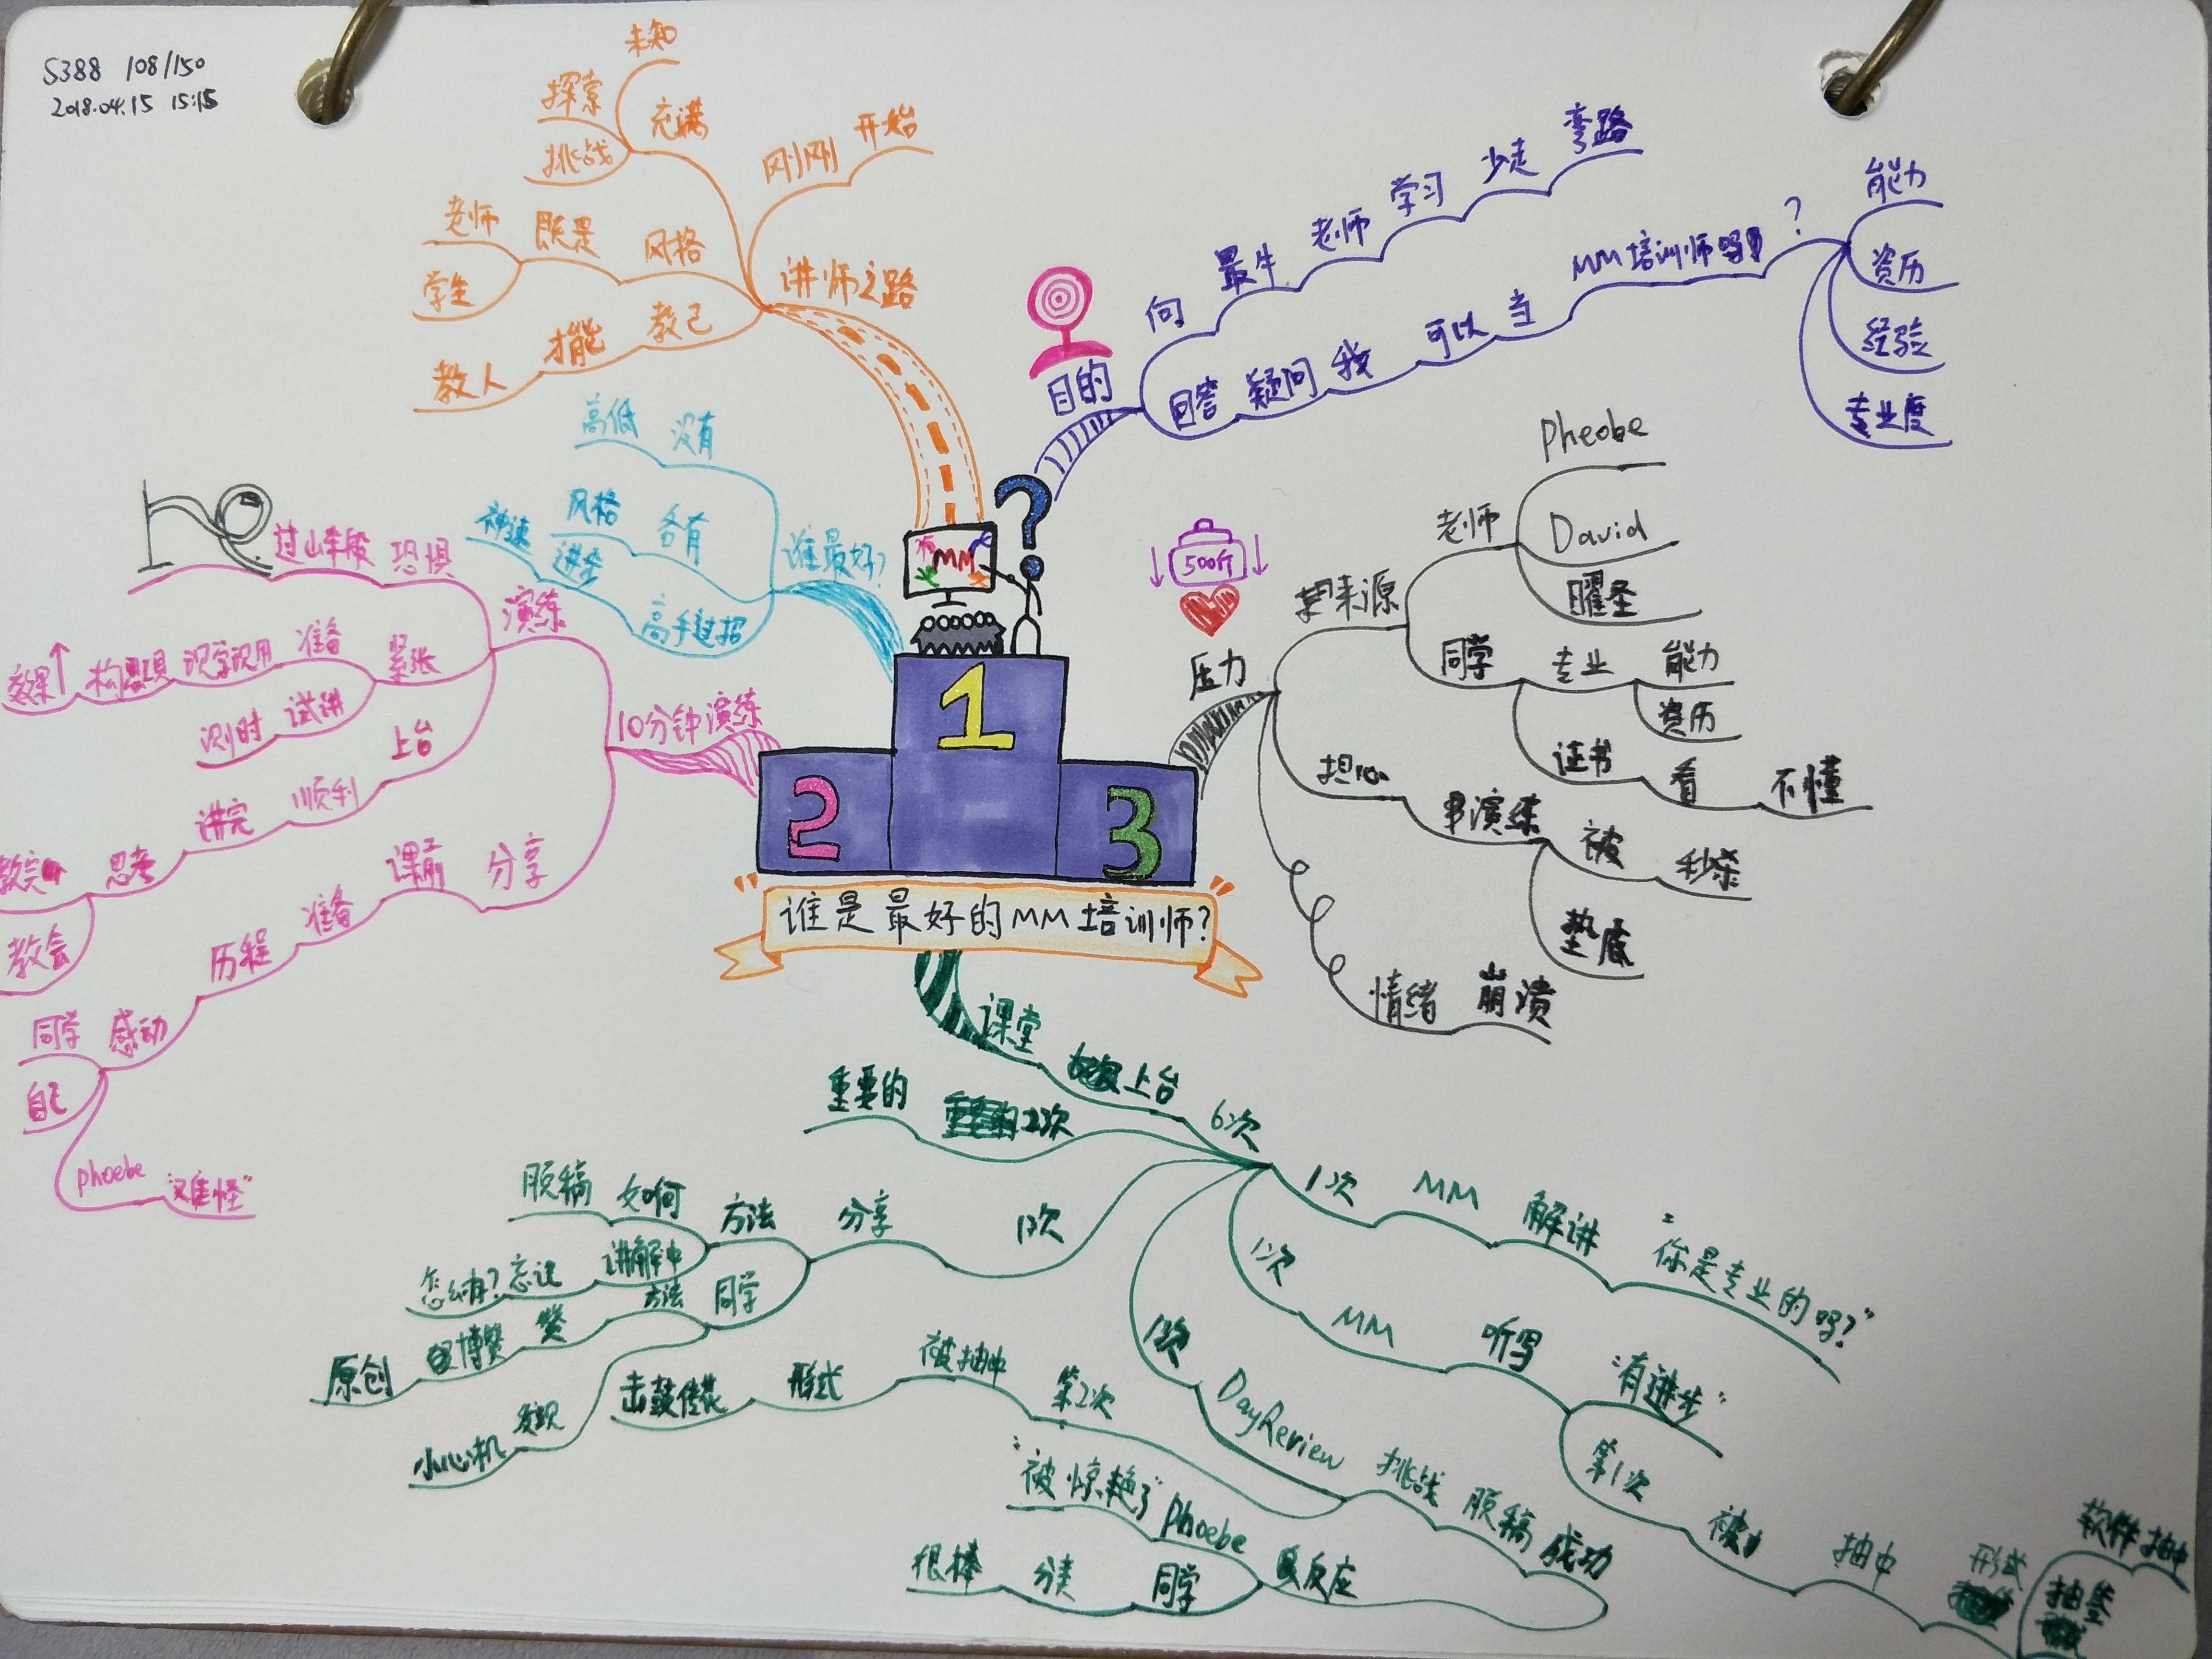 S388 108/150
2018.04.15 15:15
谁是最好的MM培训师?
1
2
3
MM
?
目的
向 最牛 老师 学习 少走 弯路
回答 疑问 我 可以 当 MM培训师吗 ?
能力
资历
经验
专业度
500斤
压力
来源
老师
Pheobe
David
曜圣
同学
专业
能力
资历
证书 看 不懂
担心
演练
被 秒杀
垫底
情绪 崩溃
课堂
上台
6次
1次 MM 解讲 "你是专业的吗?"
1次 MM 听写
"有进步"
第1次 被 抽中 形式
软件抽中
抽签
1次 DayReview 挑战 脱稿 成功
反应
Phoebe "被惊艳了"
同学 分享 很棒
第2次 被抽中 形式 击鼓传花
1次 分享
方法
如何 脱稿
讲解中 忘记 怎么办?
同学
方法 赞 博赞 原创
发现 小心机
2次 重要的
10分钟演练
演练
恐惧 过山车般
紧张
准备 现学现用 构思 效果↑
试讲 测时
上台 顺利 讲完 思考
教完
教会
分享 课前 准备 历程 感动
同学
自己
phoebe "难怪"
谁最好?
没有 高低
各有 风格
高手过招 进步 神速
讲师之路
刚刚 开始
充满
未知
探索
挑战
风格 既是
老师
学生
教己 才能 教人